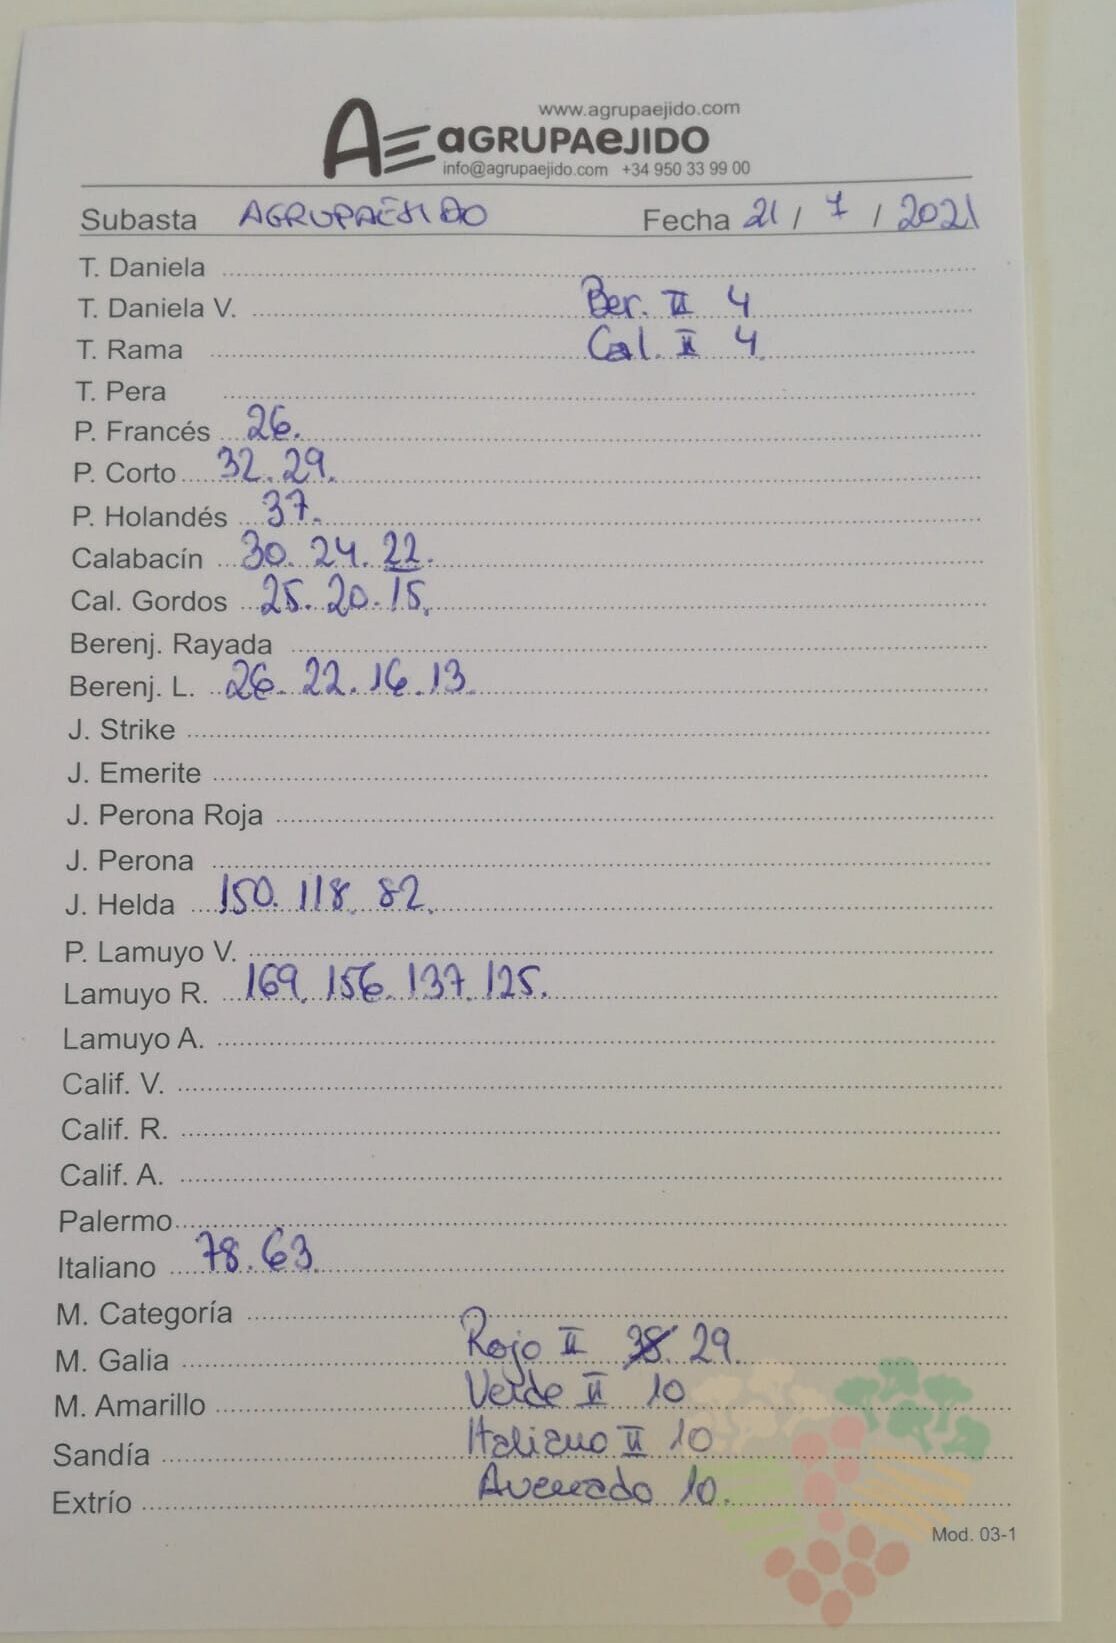 www.agrupaejido.com
AE aGRUPAeJIDO
info@agrupaejido.com +34 950 33 99 00
Subasta AGRUPAEJIDO Fecha 21 / 7 / 2021
T. Daniela
T. Daniela V. Ber. II 4
T. Rama Cal. II 4
T. Pera
P. Francés 26.
P. Corto 32. 29.
P. Holandés 37.
Calabacín 30. 24. 22.
Cal. Gordos 25. 20. 15.
Berenj. Rayada
Berenj. L. 26. 22. 16. 13.
J. Strike
J. Emerite
J. Perona Roja
J. Perona
J. Helda 150. 118. 82.
P. Lamuyo V.
Lamuyo R. 169. 156. 137. 125.
Lamuyo A.
Calif. V.
Calif. R.
Calif. A.
Palermo
Italiano 78. 63.
M. Categoría
M. Galia Rojo II 38. 29.
M. Amarillo Verde II 10
Sandía Italiano II 10
Extrío Avenado 10.
Mod. 03-1